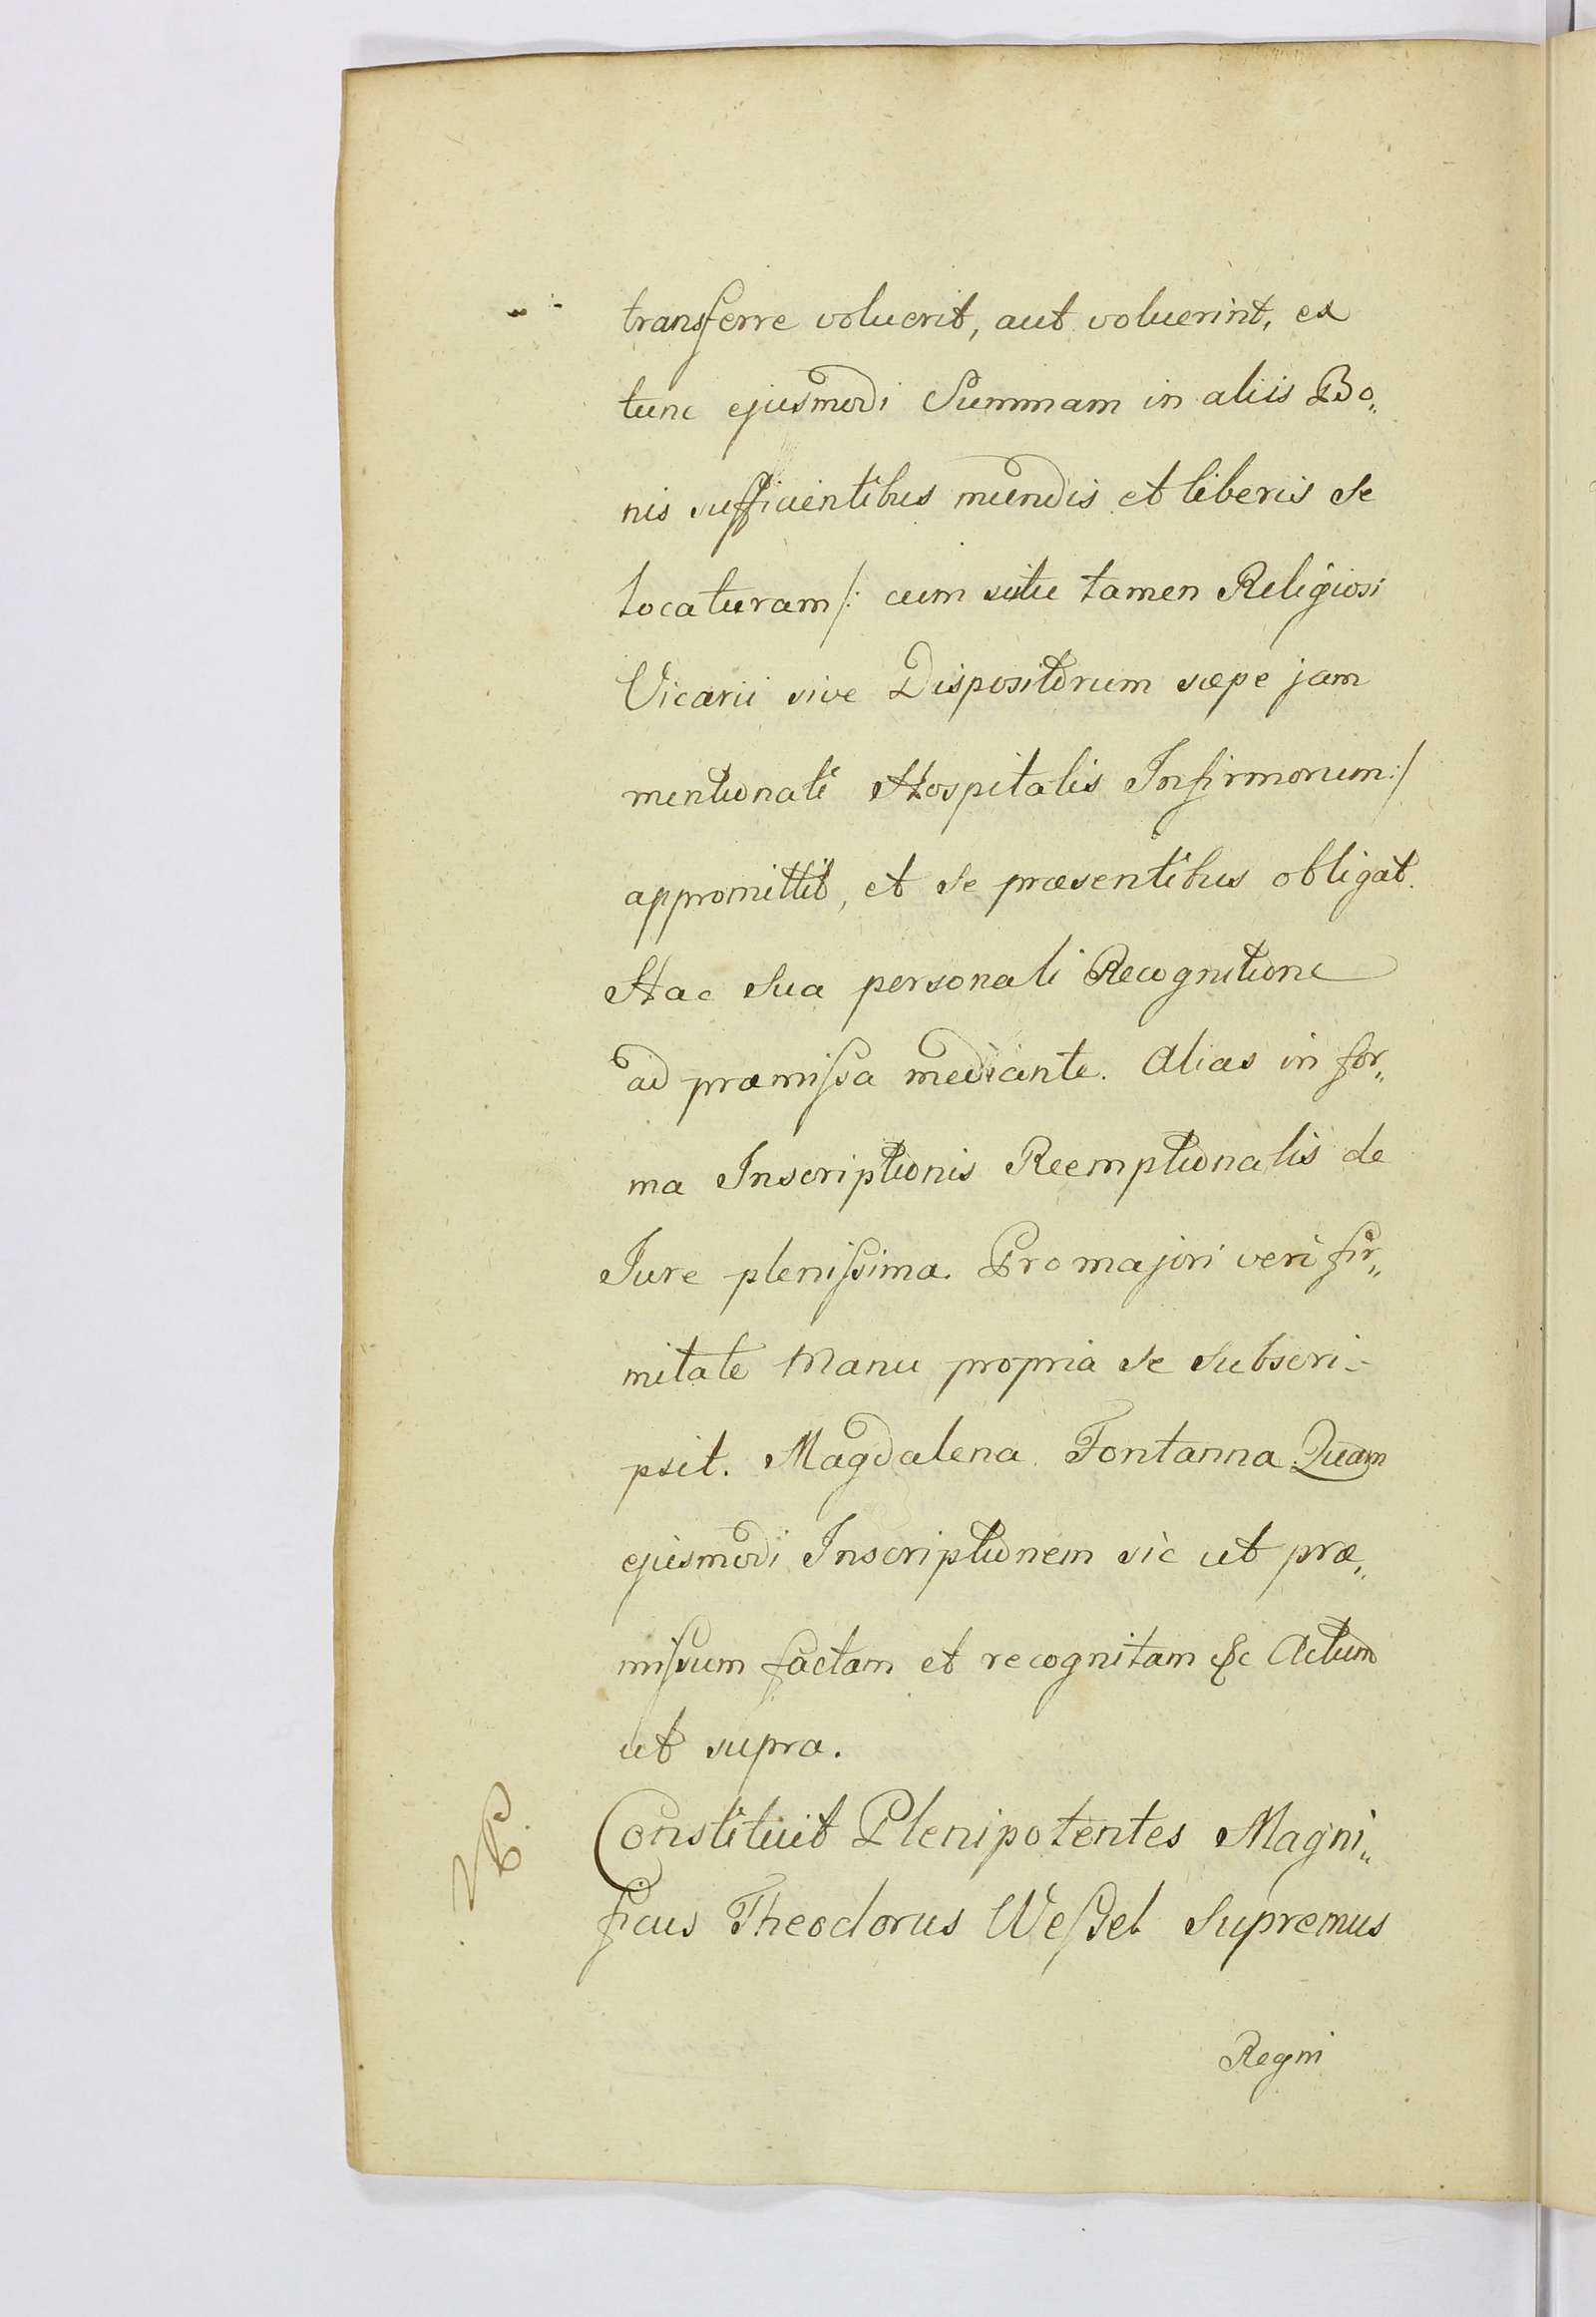 transferre voluerit, aut voluerint, ex
tunc ejusmodi Summam in aliis Bo„
nis sufficientibus mundis et liberis se
locaturam /: cum scitu tamen Religiosi
Vicarii sive Dispositorum sæpe jam
mentionati Hospitalis Infirmorum :/
appromittit, et se præsentibus obligat.
Hac sua personali Recognitione
ad præmissa mediante. Alias in for„
ma Inscriptionis Reemptionalis de
Jure plenissima. Pro majori veri fir„
mitate manu propria se subscri-
psit. Magdalena Fontanna. Quam
ejusmodi Inscriptionem sic ut præ„
missum factam et recognitam &c Actum
ut supra.
Constituit Plenipotentes Magni„
ficus Theodorus Wessel Supremus
Regni